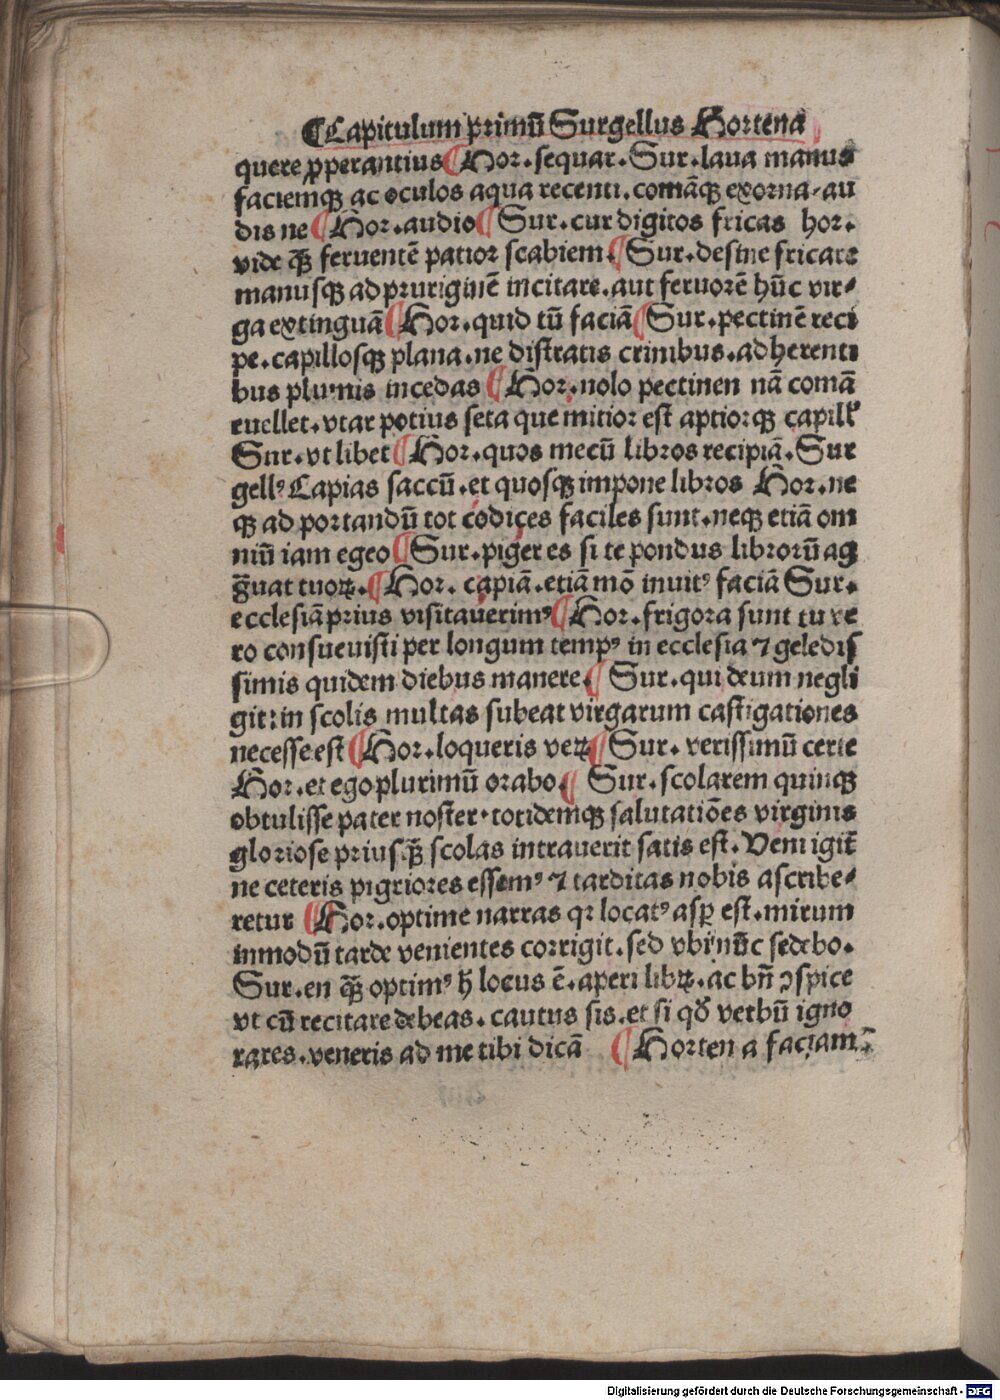 ¶Capitulum primū Surgellus Hortena
quere ꝓperantius ¶Hor. sequar. Sur. laua manus
faciemqꝫ ac oculos aqua recenti. comāqꝫ exorna, au
dis ne ¶Hor. audio ¶Sur. cur digitos fricas hor.
vide qꝫ̃ feruentē patior scabiem. ¶Sur. desine fricare
manusqꝫ ad pruriginē incitare. aut feruorē hūc vir-
ga extinguā ¶Hor. quid tū faciā ¶Sur. pectinē reci
pe. capillosqꝫ plana. ne distratis crinibus. adherenti
bus plumis incedas ¶Hor. nolo pectinen nā comā
euellet. vtar potius seta que mitior est aptiorqꝫ capillꝭ
Sur. vt libet ¶Hor. quos mecū libros recipiā. Sur
gellꝰ Capias saccū. et quosqꝫ impone libros Hor. ne
qꝫ ad portandū tot codices faciles sunt. neqꝫ etiā om
niū iam egeo ¶Sur. piger es si te pondus librorū ag
g̃uat tuoꝝ. ¶Hor. capiā. etiā mō inuitꝰ faciā Sur.
ecclesiā prius visitauerimꝰ ¶Hor. frigora sunt tu ve
ro consueuisti per longum tempꝰ in ecclesia ⁊ gelidis
simis quidem diebus manere. ¶Sur. qui deum negli
git: in scolis multas subeat virgarum castigationes
necesse est ¶Hor. loqueris veꝝ ¶Sur. verissimū certe
Hor. et ego plurimū orabo. ¶Sur. scolarem quinqꝫ
obtulisse pater noster. totidemqꝫ salutatiōes virginis
gloriose priusqꝫ̃ scolas intrauerit satis est. Veni igit̃
ne ceteris pigriores essemꝰ ⁊ tarditas nobis ascribe-
retur ¶Hor. optime narras qꝛ locatꝰ asꝑ est. mirum
inmodū tarde venientes corrigit. sed vbi nūc sedebo.
Sur. en qꝫ̃ optimꝰ ħ locus ē. aperi libꝝ. ac bn̄ ꝯspice
vt cū recitare debeas. cautus sis. et si qď verbū igno
rares. veneris ad me tibi dicā ¶Horten a faciam.